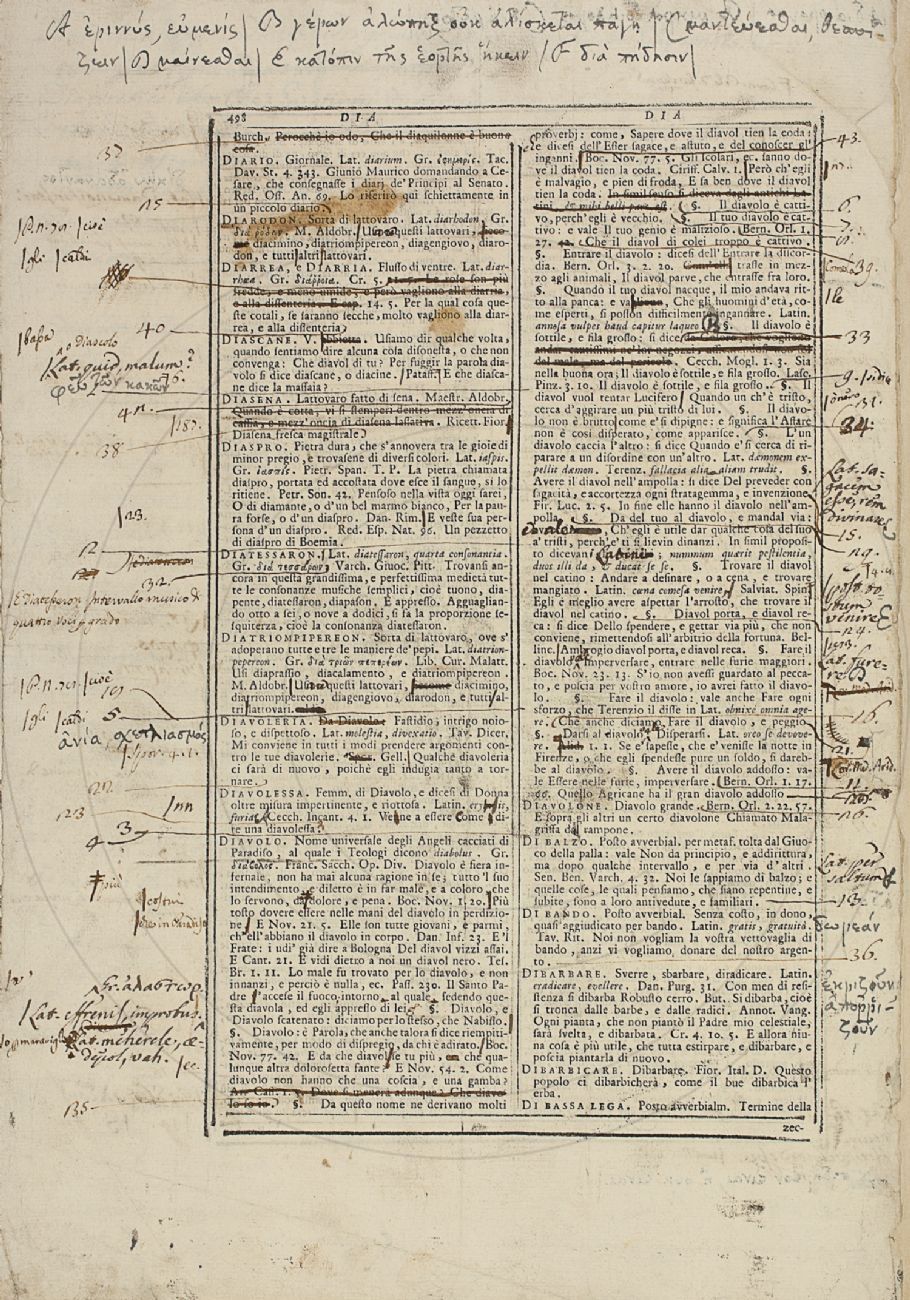 Α ἐριννύς, εὐμενίς | Β γέρων ἀλώπηξ οὐκ ἁλίσκεται πάγῃ | C μαντεύεσθαι, θεσπί-
ζειν | D μαίνεσθαι | E κατόπιν τῆς ἑορτῆς ἥκειν / F διὰ πήδησιν |
498 DIA
Burch. Perocchè io odo, Che il diaquilonne è buono
cosa.
DIARIO. Giornale. Lat. diarium. Gr. ἐφημερίς. Tac.
Dav. St. 4. 343. Giunio Maurico domandando a Ce-
sare, che consegnasse i diarj de' Principi al Senato.
Red. Oss. An. 69. Lo riferirò qui schiettamente in
un piccolo diario.
DIARODON. Sorta di lattovaro. Lat. diarhodon, Gr.
διὰ ῥόδων. M. Aldobr. questi lattovari,
diacimino, diatriompipereon, diagengiovo, diaro-
don, e tutti altri lattovari.
DIARREA, e DIARRIA. Flusso di ventre. Lat. diar-
rhœa. Gr. διάῤῥοια. Cr. 5. Le rose son più
fredde, e meno umide, e però vagliono alla diarria,
o alla dissenteria. E cap. 14. 5. Per la qual cosa que-
ste cotali, se saranno secche, molto vagliono alla diar-
rea, e alla dissenteria.
DIASCANE. V. Usiamo dir qualche volta,
quando sentiamo dire alcuna cosa disonesta, o che non
convenga: Che diavol di tu? Per fuggir la parola dia-
volo si dice diascane, o diacine. Pataff. E che diasca-
ne dice la massaia?
DIASENA. Lattovaro fatto di sena. Maestr. Aldobr.
Quando è cotta, vi si stemperi dentro mezz'oncia di
cassia, e mezz'oncia di diasena lassativa. Ricett. Fior.
Diasena fresca magistrale.
DIASPRO. Pietra dura, che s'annovera tra le gioie di
minor pregio, e trovasene di diversi colori. Lat. iaspis.
Gr. ἴασπις. Pietr. Span. T. P. La pietra chiamata
diaspro, portata ed accostata dove esce il sangue, si lo
ritiene. Petr. Son. 42. Pensoso nella vista oggi sarei,
O di diamante, o d'un bel marmo bianco, Per la pau-
ra forse, o d'un diaspro. Dan. Rim. E veste sua per-
sona d'un diaspro. Red. Esp. Nat. 96. Un pezzetto
di diaspro di Boemia.
DIATESSARON. Lat. diatessaron, quarta consonantia.
Gr. διὰ τεσσάρων. Varch. Giuoc. Pitt. Trovansi an-
cora in questa grandissima, e perfettissima medietà tut-
te le consonanze musiche semplici, cioè tuono, dia-
pente, diatessaron, diapason. E appresso. Agguaglian-
do otto a sei, o nove a dodici, si fa la proporzione se-
squiterza, cioè la consonanza diatessaron.
DIATRIOMPIPEREON. Sorta di lattovaro, ove s'
adoperano tutte e tre le maniere de' pepi. Lat. diatrion-
pepereon. Gr. διὰ τριῶν πεπερέων. Lib. Cur. Malatt.
Usi diaprassio, diacalamento, e diatriompipereon.
M. Aldobr. questi lattovari, diacimino,
diatriompipereon, diagengiovo, diarodon, e tutti al-
tri lattovari.
DIAVOLERIA. Da Diavolo. Fastidio; intrigo noio-
so, e dispettoso. Lat. molestia, divexatio. Tav. Dicer.
Mi conviene in tutti i modi prendere argomenti con-
tro le tue diavolerie. Gell. Qualche diavoleria
ci sarà di nuovo, poichè egli indugia tanto a tor-
nare.
DIAVOLESSA. Femm. di Diavolo, e dicesi di Donna
oltre misura impertinente, e riottosa. Latin.
furia. Cecch. Incant. 4. 1. Venne a essere come di-
re una diavolessa.
DIAVOLO. Nome universale degli Angeli cacciati di
Paradiso, al quale i Teologi dicono diabolus. Gr.
διάβολος. Franc. Sacch. Op. Div. Diavolo è fiera in-
fernale, non ha mai alcuna ragione in se; tutto 'l suo
intendimento, e diletto è in far male, e a coloro, che
lo servono, dà dolore, e pena. Boc. Nov. 1. 20. Più
tosto dovere essere nelle mani del diavolo in perdizio-
ne. E Nov. 21. 5. Elle son tutte giovani, e parmi,
ch'ell'abbiano il diavolo in corpo. Dan. Inf. 23. E'l
Frate: i udi' già dire a Bologna Del diavol vizzi assai.
E Cant. 21. E vidi dietro a noi un diavol nero. Tes.
Br. 1. 11. Lo male fu trovato per lo diavolo, e non
innanzi, e perciò è nulla, ec. Pass. 230. Il Santo Pa-
dre s'accese il fuoco intorno, al quale sedendo que-
sta diavola, ed egli appresso di lei. §. Diavolo, e
Diavolo scatenato: diciamo per lo stesso, che Nabisso.
§. Diavolo: è Parola, che anche talora si dice riempiti-
vamente, per modo di dispregio, da chi è adirato. Boc.
Nov. 77. 42. E da che diavol se tu più, che qua-
lunque altra dolorosetta fante? E Nov. 54. 2. Come
diavolo non hanno che una coscia, e una gamba?
Ar. Cass. 1. 3. Dove si menerà adunque? Che diavo-
lo so io? §. Da questo nome ne derivano molti
DIA
proverbj: come, Sapere dove il diavol tien la coda:
e dicesi dell'Esser sagace, e astuto, e del conoscer gl'
inganni. Boc. Nov. 77. 5. Gli scolari, ec. sanno do-
ve il diavol tien la coda. Ciriff. Calv. 1. Però ch'egli
è malvagio, e pien di froda, E sa ben dove il diavol
tien la coda. In simil senso si diceva dagli antichi La-
tini, & mihi belli pars est. §. Il diavolo è catti-
vo, perch'egli è vecchio. §. Il tuo diavolo è cat-
tivo: e vale Il tuo genio è malizioso. Bern. Orl. 1.
27. 42. Che il diavol di colei troppo è cattivo.
§. Entrare il diavolo: dicesi dell'Entrare la discor-
dia. Bern. Orl. 3. 2. 20. trasse in mez-
zo agli animali, Il diavol parve, che entrasse fra loro.
§. Quando il tuo diavol nacque, il mio andava rit-
to alla panca: e vagliono, Che gli huomini d'età, co-
me esperti, si posson difficilmente ingannare. Latin.
annosa vulpes haud capitur laqueo. B §. Il diavolo è
sottile, e fila grosso: si dice da Coloro, che vogliono
andar cautissimi ne' lor negozj, assicurandosi non sol
del male, ma del pericolo. Cecch. Mogl. 1. 3. Sia
nella buona ora; Il diavolo è sottile, e fila grosso. Lasc.
Pinz. 3. 10. Il diavolo è sottile, e fila grosso. §. Il
diavol vuol tentar Lucifero: Quando un ch'è tristo,
cerca d'aggirare un più tristo di lui. §. Il diavo-
lo non è brutto come e' si dipigne: e significa l'Affare
non è così disperato, come apparisce. §. L'un
diavolo caccia l'altro: si dice Quando e' si cerca di ri-
parare a un disordine con un'altro. Lat. dæmonem ex-
pellit dæmon. Terenz. fallacia alia aliam trudit. §.
Avere il diavolo nell'ampolla: si dice Del preveder con
sagacità, e accortezza ogni stratagemma, e invenzione.
Fir. Luc. 2. 5. In fine elle hanno il diavolo nell'am-
polla. §. Da del tuo al diavolo, e mandal via:
e vale Ch'egli è utile dar qualche cosa del tuo
a' tristi, perch'e' ti si lievin dinanzi. In simil proposi-
to dicevan i Latini; nummum quærit pestilentia,
duos illi da, & ducat se se. §. Trovare il diavol
nel catino: Andare a desinare, o a cena, e trovare
mangiato. Latin. cœna comesa venire. Salviat. Spin.
Egli è meglio avere aspettar l'arrosto, che trovare il
diavol nel catino. §. Diavol porta, e diavol re-
ca: si dice Dello spendere, e gettar via più, che non
conviene, rimettendosi all'arbitrio della fortuna. Bel-
linc. Ambrogio diavol porta, e diavol reca. §. Fare il
diavolo: Imperversare, entrare nelle furie maggiori.
Boc. Nov. 23. 13. S'io non avessi guardato al pecca-
to, e poscia per vostro amore, io avrei fatto il diavo-
lo. §. Fare il diavolo: vale anche Fare ogni
sforzo, che Terenzio il disse in Lat. obnixè omnia age-
re. Che anche diciamo, Fare il diavolo, e peggio.
§. Darsi al diavolo: Disperarsi. Lat. orco se devove-
re. Alid. 1. 1. Se e' sapesse, che e' venisse la notte in
Firenze, o che egli spendesse pure un soldo, si dareb-
be al diavolo. §. Avere il diavolo addosso: va-
le Essere nelle furie, imperversare. Bern. Orl. 1. 17.
Quello Agricane ha il gran diavolo addosso.
DIAVOLONE. Diavolo grande. Bern. Orl. 2. 22. 57.
E sopra gli altri un certo diavolone Chiamato Mala-
griffa dal rampone.
DI BALZO. Posto avverbial. per metaf. tolta dal Giuo-
co della palla: vale Non da principio, e addirittura,
ma dopo qualche intervallo, e per via d'altri.
Sen. Ben. Varch. 4. 32. Noi le sappiamo di balzo; e
quelle cose, le quali pensiamo, che siano repentine, e
subite, sono a loro antivedute, e familiari.
DI BANDO. Posto avverbial. Senza costo, in dono,
quasi aggiudicato per bando. Latin. gratis, gratuitò.
Tav. Rit. Noi non vogliam la vostra vettovaglia di
bando, anzi vi vogliamo donare del nostro argen-
to.
DIBARBARE. Sverre, sbarbare, diradicare. Latin.
eradicare, evellere. Dan. Purg. 31. Con men di resi-
stenza si dibarba Robusto cerro. But. Si dibarba, cioè
si tronca dalle barbe, e dalle radici. Annot. Vang.
Ogni pianta, che non piantò il Padre mio celestiale,
sarà svelta, e dibarbata. Cr. 4. 10. 5. E allora niu-
na cosa è più utile, che tutta estirpare, e dibarbare, e
poscia piantarla di nuovo.
DIBARBICARE. Dibarbare. Fior. Ital. D. Questo
popolo ci dibarbicherà, come il bue dibarbica l'
erba.
DI BASSA LEGA. Posto avverbialm. Termine della
zec-
37
15
40
o diascolo
Lat. quid, malum?
φεῦ τῶν κακῶν
41.
38
187.
123.
12
32.
quattro voci, o grado
5
ἀνία, σχετλιασμός
22
123
4 3
Gr. ἀλάστωρ.
Lat. effrenis, improbus.
Lat. mehercle, æ-
depol, vah.
135
43.
6.
7.
39.
33
9.
31.
34
Lat. sa-
gacem
esse, rem
odorare C
15.
29.
post fe-
stum
venire E
24.
Lat. fure-
re D
16.
21.
Lat. per
saltum F
13.
δωρεάν
36.
ἐκριζοῦν
ἀπορρι-
ζοῦν